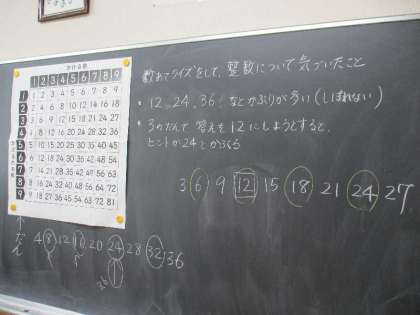 かける数
1 2 3 4 5 6 7 8 9
1 1 2 3 4 5 6 7 8 9
2 2 4 6 8 10 12 14 16 18
3 3 6 9 12 15 18 21 24 27
4 4 8 12 16 20 24 28 32 36
5 5 10 15 20 25 30 35 40 45
6 6 12 18 24 30 36 42 48 54
7 7 14 21 28 35 42 49 56 63
8 8 16 24 32 40 48 56 64 72
9 9 18 27 36 45 54 63 72 81
かけられる数
数あてクイズをして、整数について気づいたこと
・12、24、36! などかぶりが多い(しぼれない)
・3のだんで 答えを12にしようとすると、
ヒントが24とかぶる
3 6 9 12 15 18 21 24 27
4 8 12 16 20 24 28 32 36
36